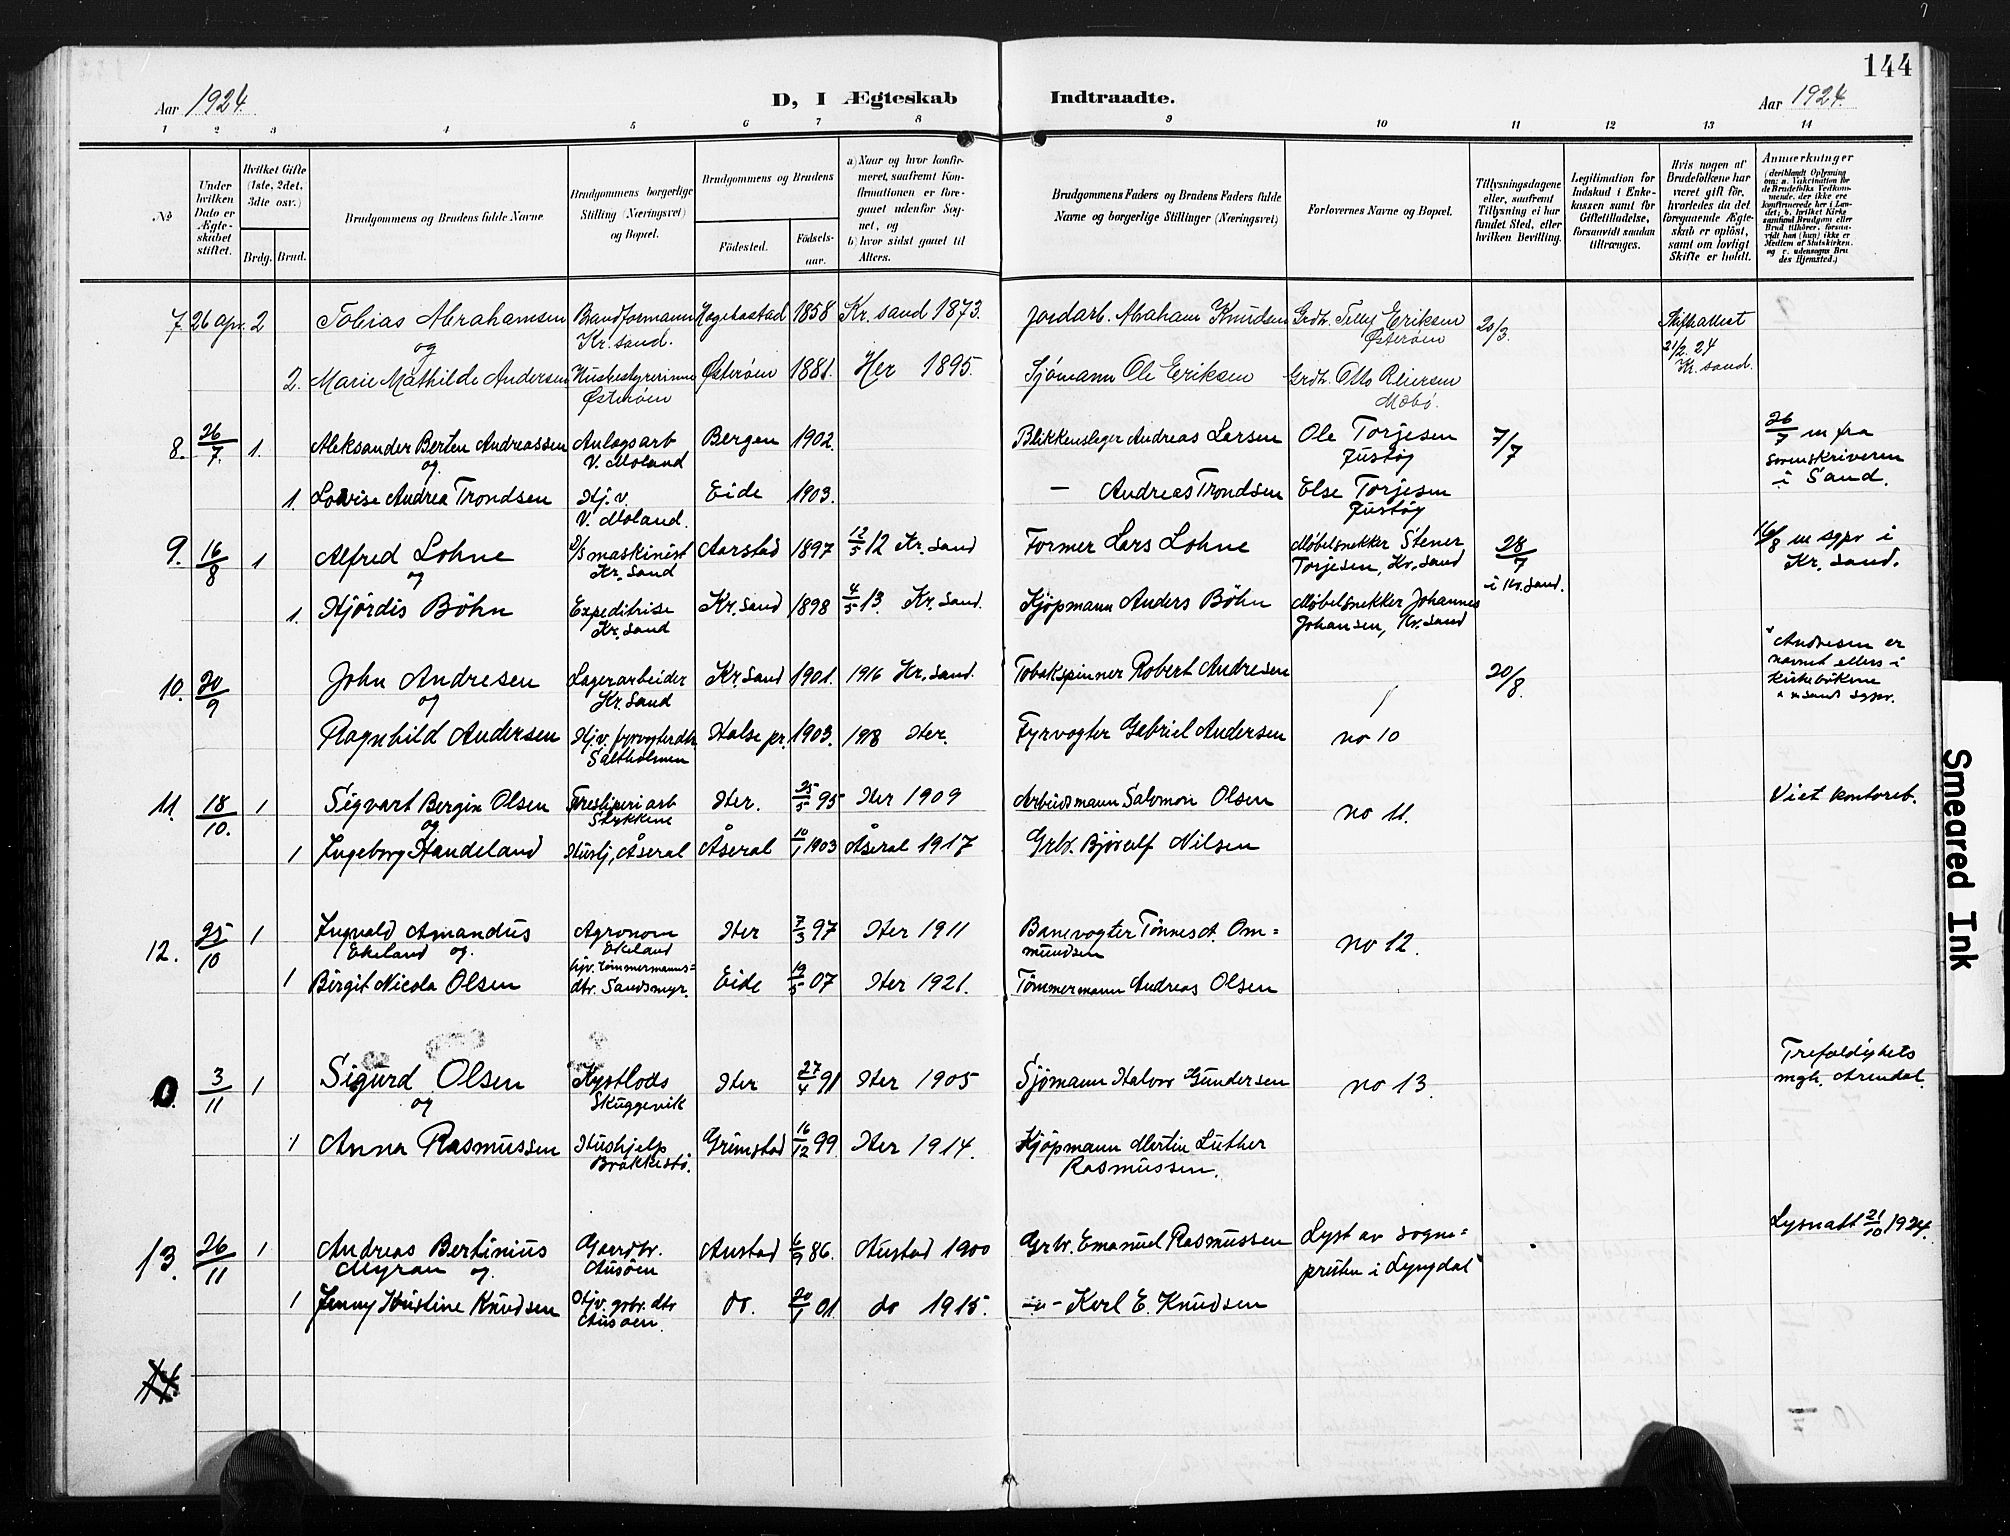 144
Aar 1924.
D, I Ægteskab Indtraadte.
Aar 1924.
1 2 3 4 5 6 7 8 9 10 11 12 13 14
No
Under hvilken Dato er Ægteskabet stiftet.
Hvilket Gifte (1ste, 2det, 3die osv.)
Brdg. Brud.
Brudgommens og Brudens fulde Navne
Brudgommens borgerlige Stilling (Næringsvei) og Bopæl.
Brudgommens og Brudens
Födested. Födselsaar.
a) Naar og hvor konfirmeret, saafremt Konfirmationen er foregaaet udenfor Sognet, og
b) hvor sidst gaaet til Alters.
Brudgommens Faders og Brudens Faders fulde Navne og borgerlige Stillinger (Næringsvei)
Forlovernes Navne og Bopæl.
Tillysningsdagene eller, saafremt Tillysning ei har fundet Sted, efter hvilken Bevilling.
Legitimation for Indskud i Enkekassen samt for Giftetilladelse, forsaavidt saadan tiltrænges.
Hvis nogen af Brudefolkene har været gift før, hvorledes da det foregaaende Ægteskab er oplöst, samt om lovligt Skifte er holdt.
Anmærkninger
7. 26 apr. 2 Tobias Abrahamsen Brandformann Hægebostad 1858 Kr.sand 1873. Jordarb. Abraham Knudsen Grdb. Telly Eriksen 20/3 Skifteattest
og Kr.sand. Østerøen 21/2 24
Kr. sand.
2. Marie Mathilde Andersen Husbestyrerinne Østerøen 1881. Her 1895. Sjømann Ole Eriksen Grdb. Otto Reiersen
Østerøen Mæbø.
8. 26/7. 1. Aleksander Berten Andreassen Anlogsarb Bergen 1902. Blikkenslager Andreas Larsen Ole Torjesen 7/7 26/7 m fra
og V. Moland Justøy sorenskriveren
i Sand.
1. Lovise Andrea Trondsen Hj.v. Eide 1903. — Andreas Trondsen Else Torjesen
V. Moland. Justøy
9. 16/8 1 Alfred Lohne D/S maskinist Aarstad 1897 12/5 12 Kr. Sand Former Lars Lohne Møbelsnekker Stener 28/7 16/8 m sgpr i
og Kr. Sand Torjesen, Kr. Sand i Kr. Sand. Kr. Sand.
1. Hjördis Böhn Expeditrise Kr. Sand 1898 4/5 13. Kr. Sand. Kjöpmann Anders Böhn Møbelsnekker Johannes
Kr. Sand Johansen, Kr. Sand
10. 20/9 John Andresen Lagerarbeider Kr. Sand 1901. 1916 Kr. Sand. Tobakspinner Robert Andresen 20/8. Andresen er
og Kr. Sand navnet ellers i
Kirkebökene
Ragnhild Andersen Hj.v. fyrvogterdtr Halse pr. 1903. 1918 Her. Fyrvogter Gabriel Andersen no 10
Saltholmen
11. 18/10. 1 Sigvart Bergin Olsen Her. 25/5 95 Her 1909 Arbeidsmann Salomon Olsen no 11. Viet kontoret.
og Stykkene
1 Ingeborg Handeland Hushj, Åseral Åseral 10/1 1903 Åseral 1917 Grbr. Bjørulf Nilsen
12. 25/10 1 Ingvald Amandus Agronom Her 7/3 97 Her 1911 Banevogter Tønnes A. Om= no 12.
Ekeland og. Ekeland mundsen
1 Birgit Nicola Olsen hjv. tömmermanns= Eide 19/5 07 Her 1921. Tömmermann Andreas Olsen
dtr. Sandsmyr.
3/11 1 Sigurd Olsen Kystlods Her 27/4 91 Her 1905 Sjømann Halvor Gundersen no 13. Trefoldighets
og Skuggevik mgh. Arendal.
1 Anna Rasmussen Hushjelp Grimstad 16/12 99 Her 1914. Kjöpmann Martin Luther
Brækkestö. Rasmussen.
13. 26/11 1 Andreas Bertinius Gaardbr. Austad 6/9 86. Austad 1900 Grbr. Emanuel Rasmussen Lyst av sogne= Lysnatt 21/10 1924.
Myran og. Ausöen presten i Lyngdal
1 Jenny Kristine Knudsen Hjv. grbr. dtr do. 20/1 01. do 1915. —"— Karl E. Knudsen
Ausöen
14
Smeared Ink